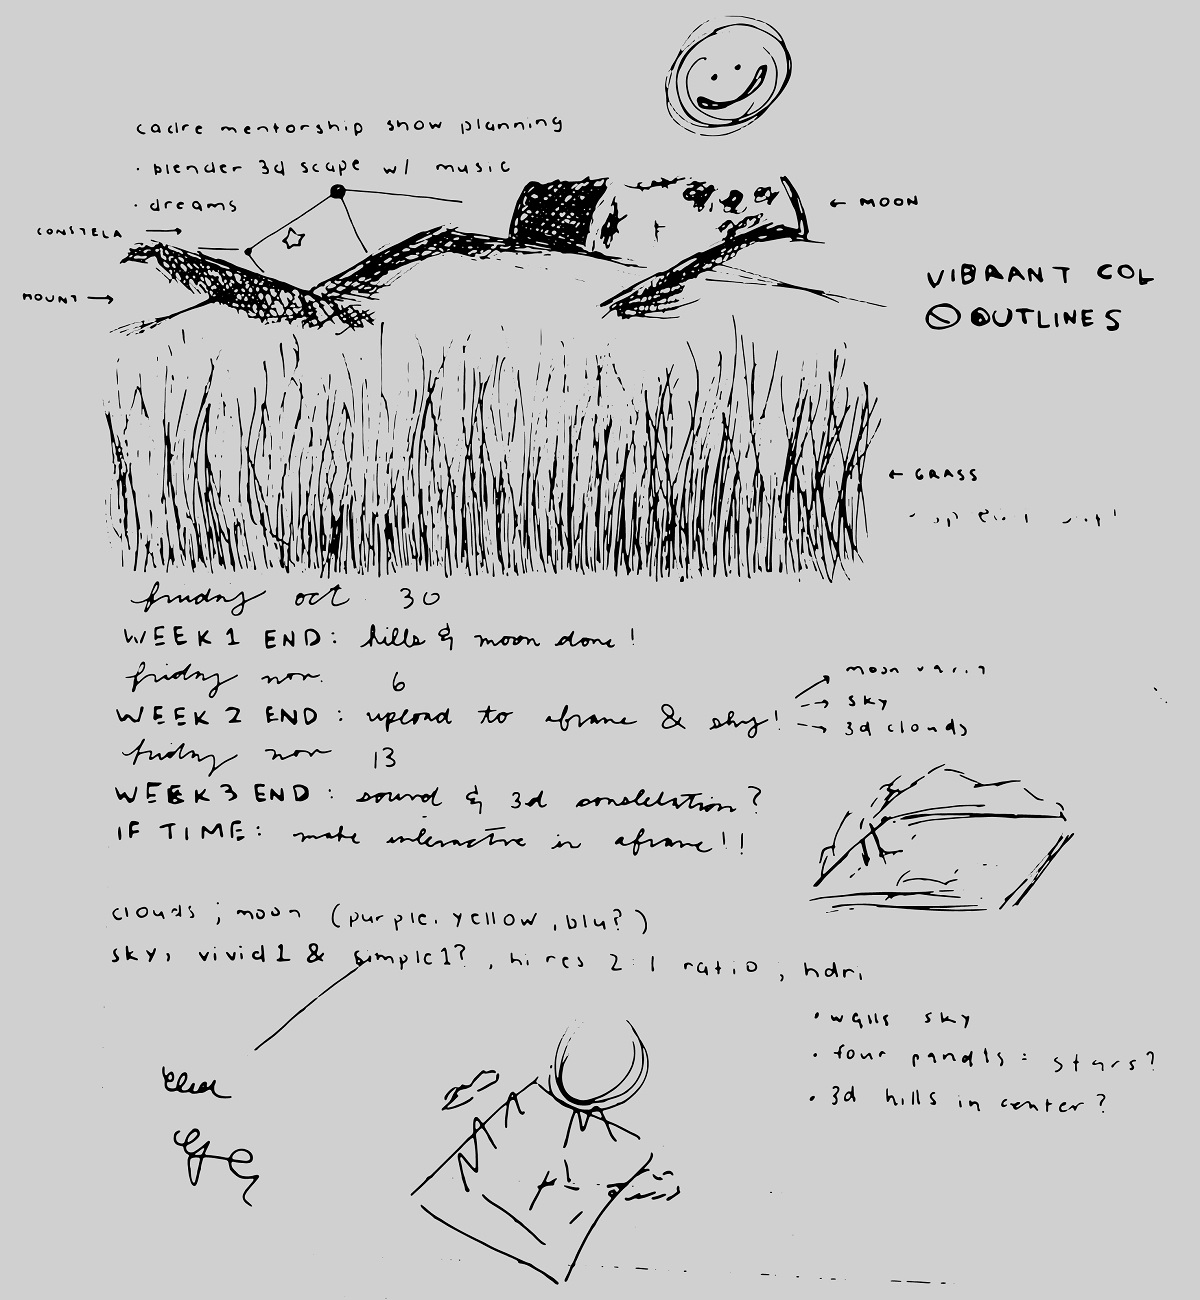 cadre mentorship show planning
· blender 3d scape w/ music
· dreams
CONSTELA →
← MOON
MOUNT →
VIBRANT COL
OUTLINES
← GRASS
friday oct 30
WEEK 1 END: hills & moon done!
friday nov. 6
WEEK 2 END: upload to aframe & sky!
moon
sky
3d clouds
friday nov 13
WEEK 3 END: sound & 3d constelation?
IF TIME: make interactive in aframe!!
clouds ; moon (purple, yellow, blu?)
sky, vivid 1 & simple 1?, hi res 2:1 ratio ; hdri
· walls sky
· four panals: stars?
· 3d hills in center?